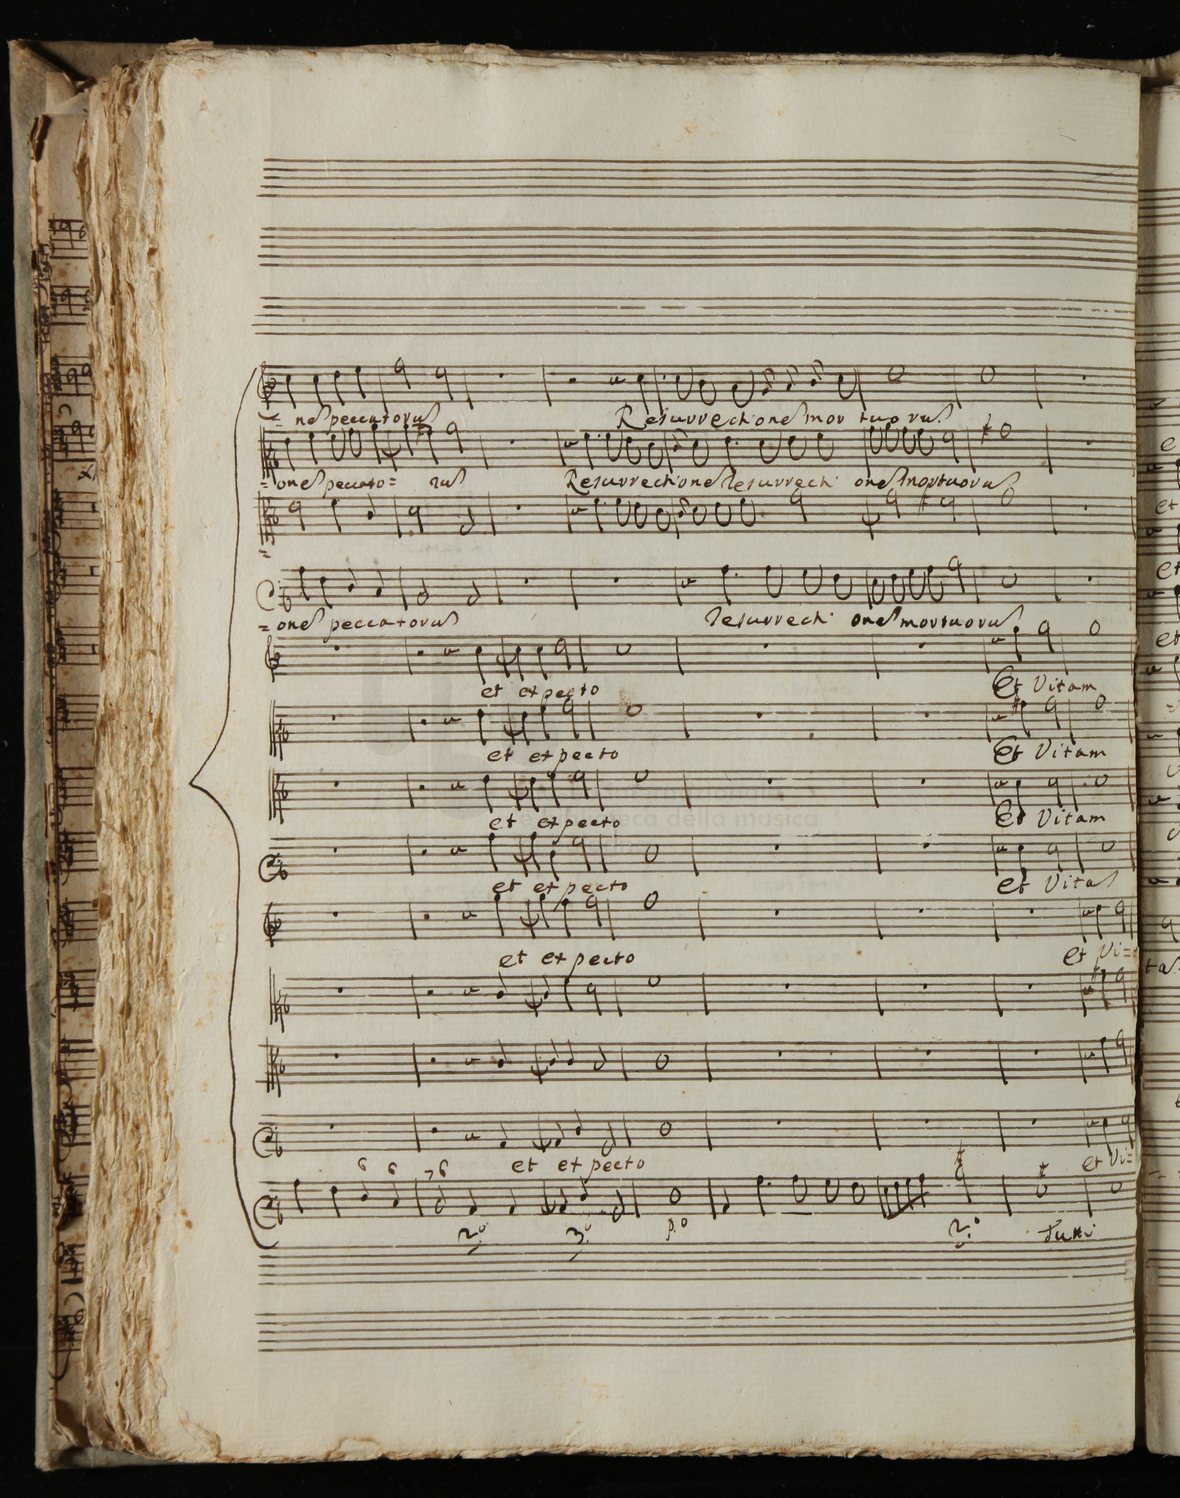 = nes peccatorus Resurrectiones mor tuo rus
= ones peccato= rus Resurrectiones Resurrecti ones mortuorus
= ones peccatorus Resurrecti ones mortuorus
et expecto Et Vitam
et expecto Et Vitam
et expecto Et Vitam
et expecto et Vitas
et expecto et Vi=
et expecto et Vi=
6 6 76
2.º 3.º p.º 2.º Tutti